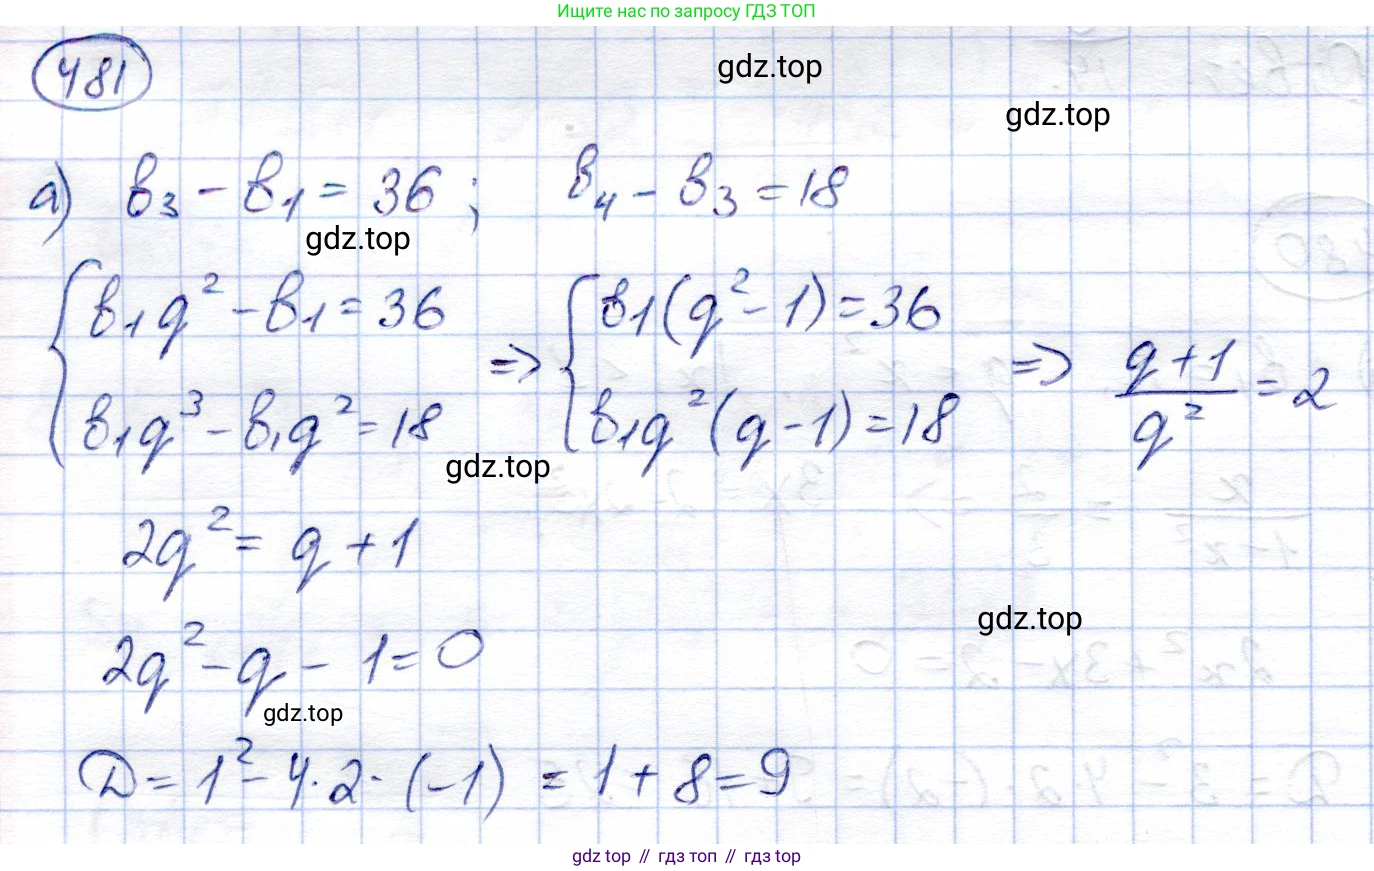 Ищите нас по запросу ГДЗ ТОП
481
gdz.top
gdz.top
а) b₃ - b₁ = 36 ; b₄ - b₃ = 18
gdz.top
{ b₁q² - b₁ = 36 => { b₁(q² - 1) = 36 => (q + 1)/q² = 2
b₁q³ - b₁q² = 18 b₁q²(q - 1) = 18
gdz.top
2q² = q + 1
gdz.top
2q² - q - 1 = 0
gdz.top
D = 1² - 4 · 2 · (-1) = 1 + 8 = 9
gdz top // гдз топ // gdz top